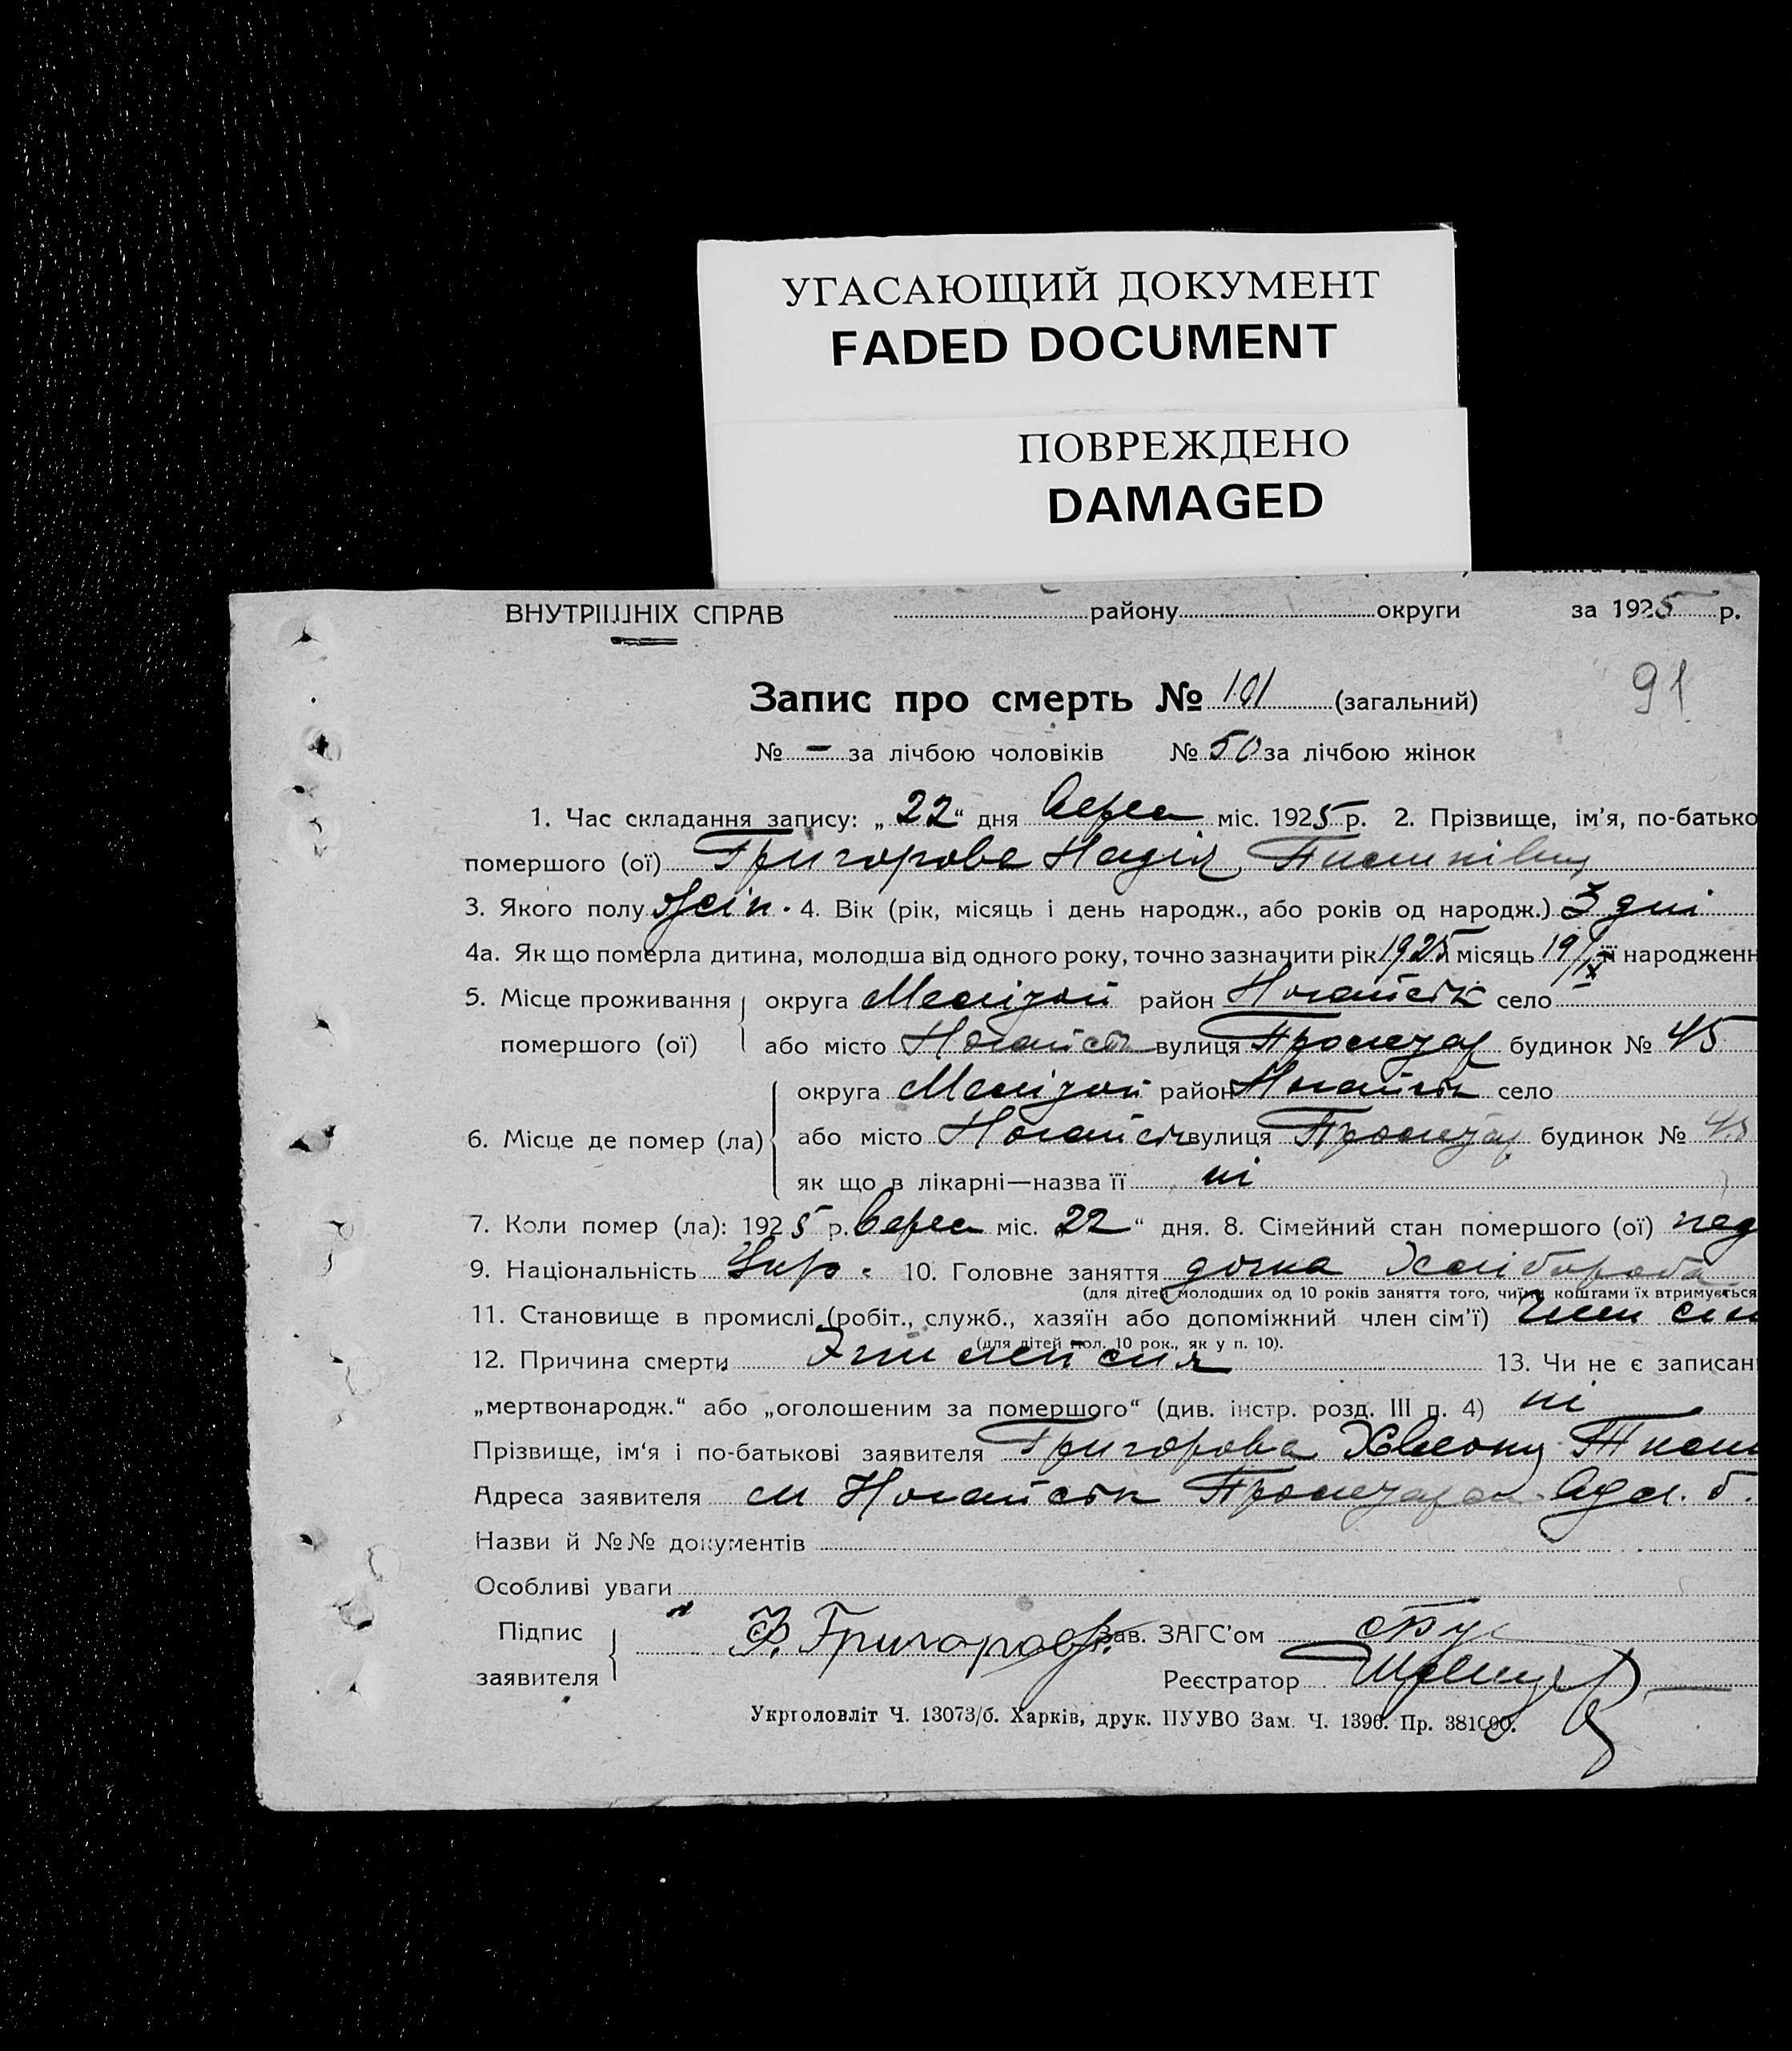 УГАСАЮЩИЙ ДОКУМЕНТ
FADED DOCUMENT
ПОВРЕЖДЕНО
DAMAGED
ВНУТРІШНІХ СПРАВ району округи за 1925 р.
91
Запис про смерть № 101 (загальний)
№ – за лічбою чоловіків № 50 за лічбою жінок
1. Час складання запису: „22“ дня верес міс. 1925 р. 2. Прізвище, ім'я, по-батько
помершого (ої) Григорова Надія
3. Якого полу жін. 4. Вік (рік, місяць і день народж., або років од народж.) 3 дні
4а. Як що померла дитина, молодша від одного року, точно зазначити рік 1925 місяць 19/IX її народженн
5. Місце проживання округа Меліпол район Ногайськ село
помершого (ої) або місто Ногайськ вулиця Пролетар будинок № 45
округа Меліпол район Ногайськ село
6. Місце де помер (ла) або місто Ногайськ вулиця Пролетар будинок № 45
як що в лікарні—назва її ні
7. Коли помер (ла): 1925 р. верес міс. „22“ дня. 8. Сімейний стан помершого (ої)
9. Національність Укр. 10. Головне заняття дочка Хлібороба
(для дітей молодших од 10 років заняття того, чиїми коштами їх втримується
11. Становище в промислі (робіт., служб., хазяїн або допоміжний член сім'ї) член сім
(для дітей мол. 10 рок., як у п. 10).
12. Причина смерти Эпилепсия 13. Чи не є записан
„мертвонародж.“ або „оголошеним за помершого“ (див. інстр. розд. III п. 4) ні
Прізвище, ім'я і по-батькові заявителя Григорова
Адреса заявителя м Ногайськ б.
Назви й №№ документів
Особливі уваги
Підпис Ф. Григоров Зав. ЗАГС'ом
заявителя Реєстратор
Укрголовліт Ч. 13073/б. Харків, друк. ПУУВО Зам. Ч. 1396. Пр. 381000.